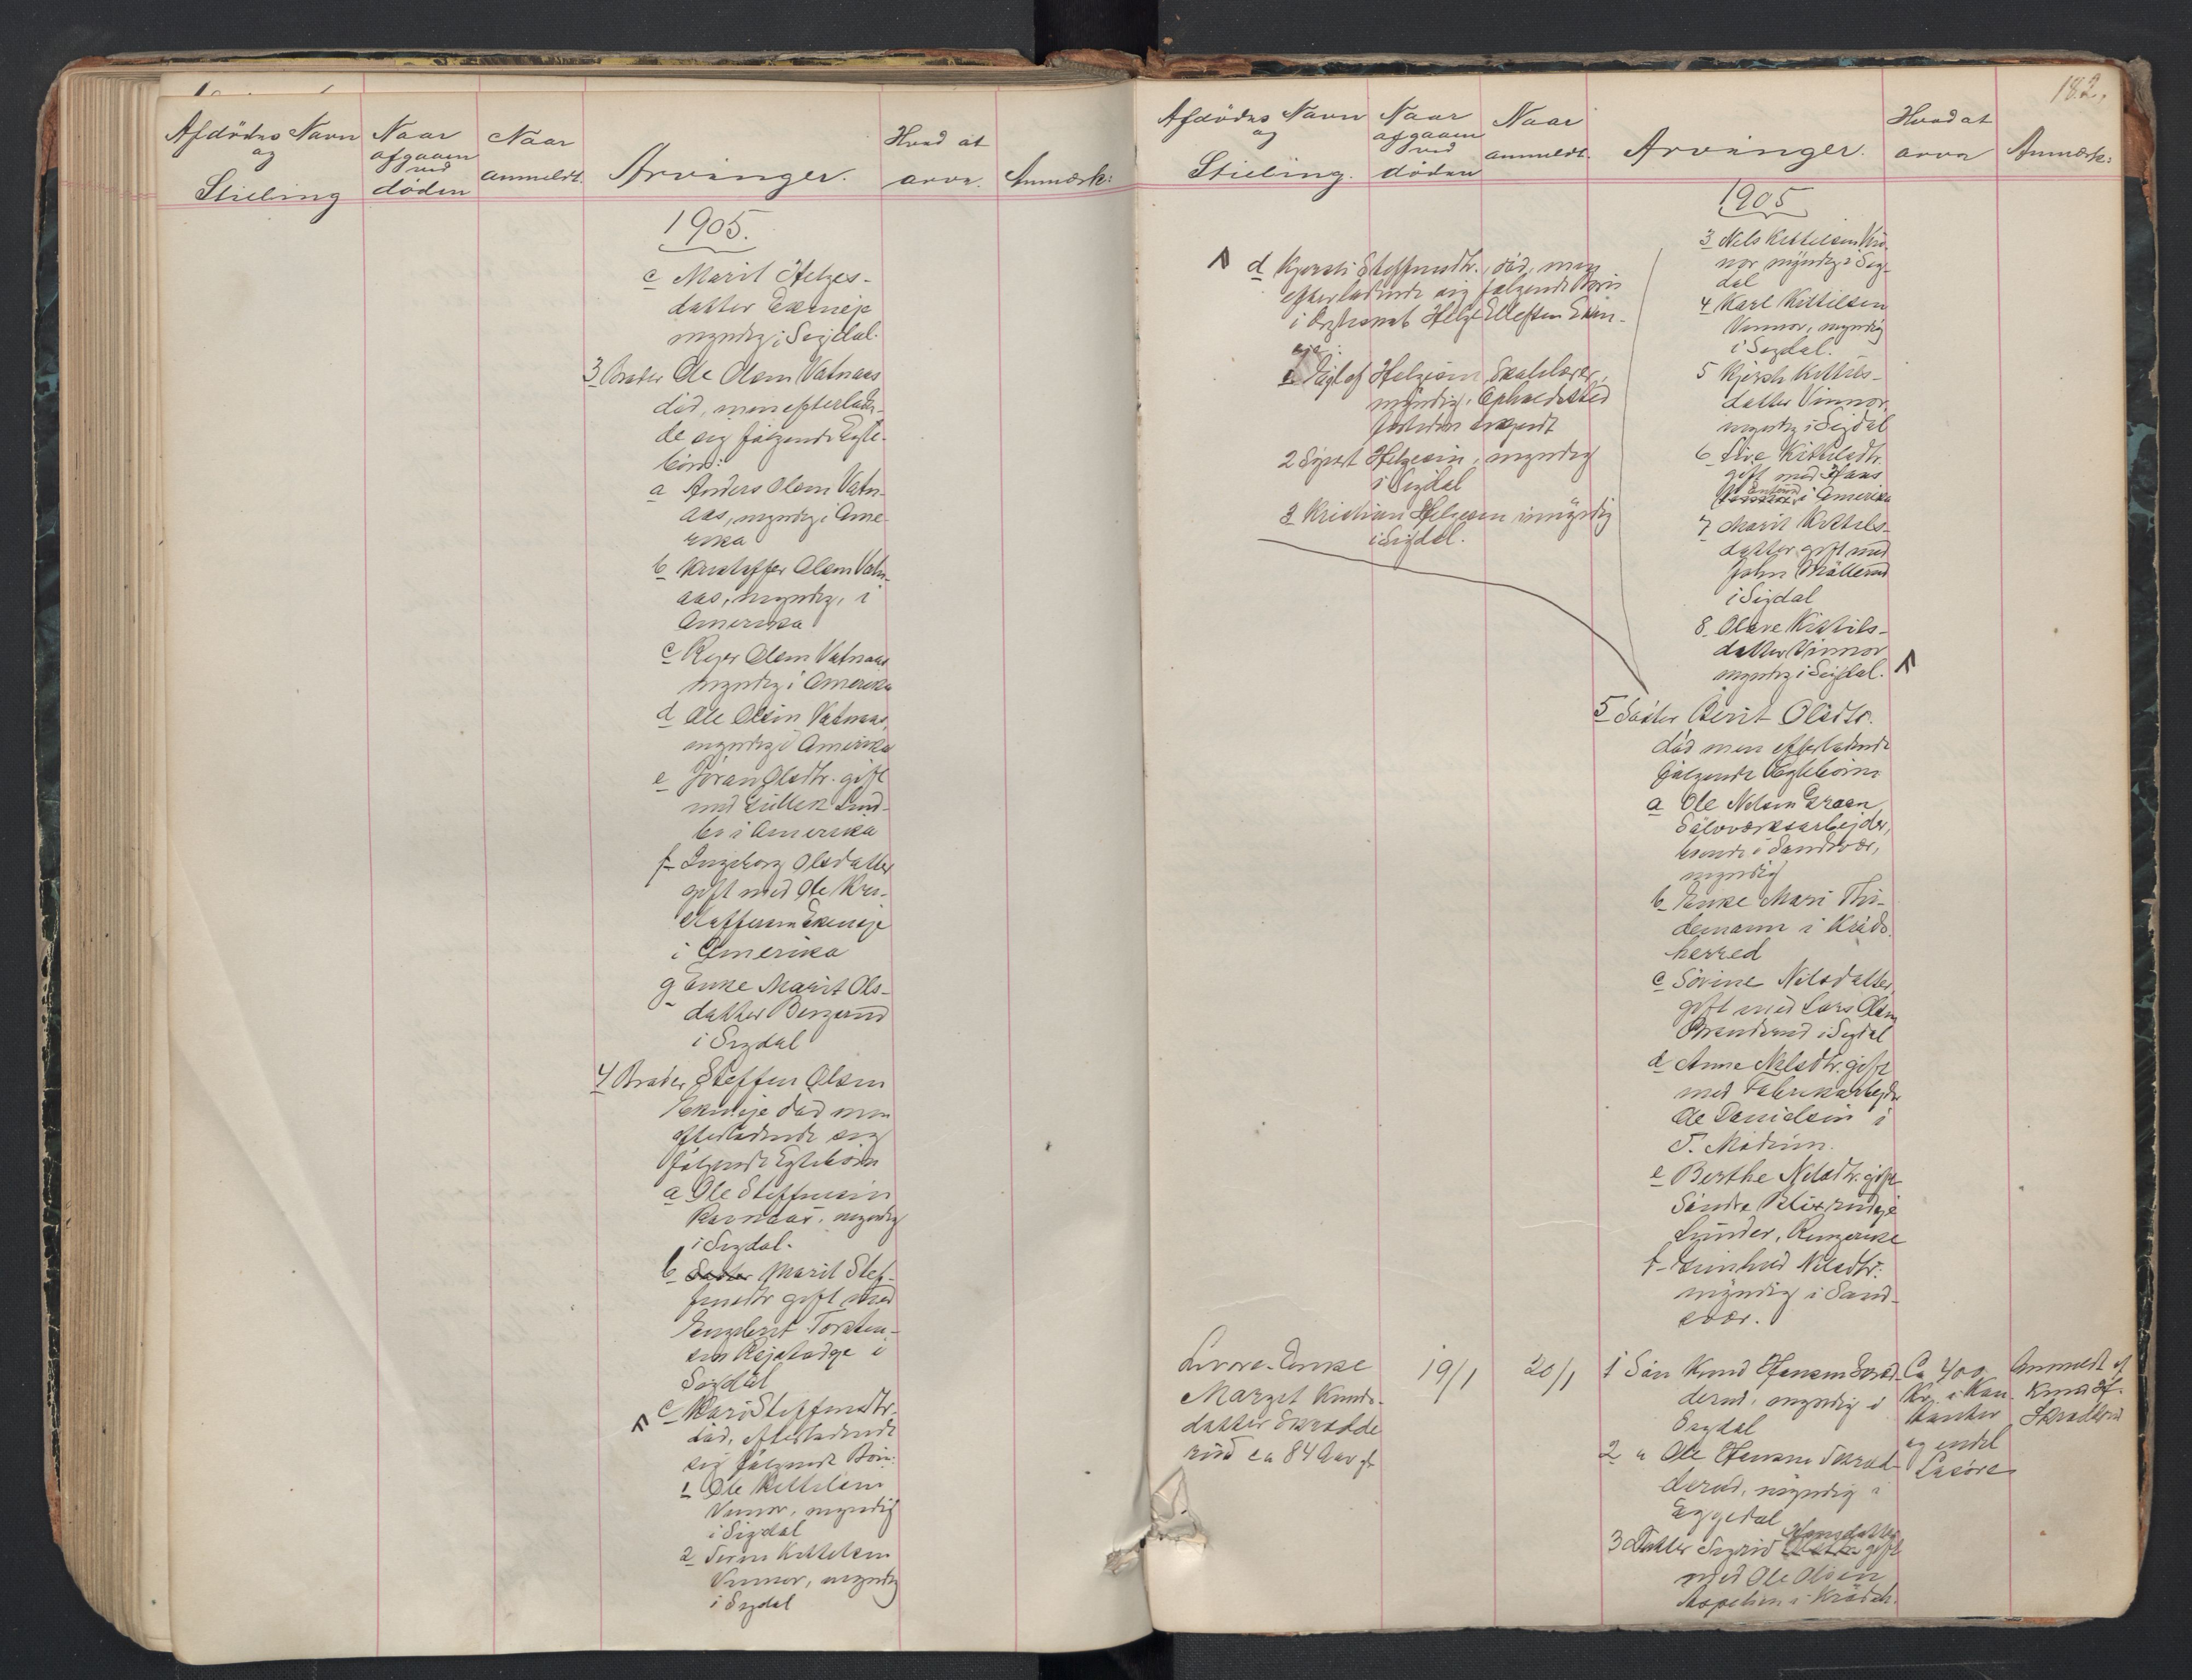 Afdødes Navn
og
Stilling
Naar
afgaaen
ved
døden
Naar
anmeldt.
Arvinger.
Hvad at
arve.
Anmærk:
1905.
c Marit Helges-
datter Ekeneje
myndig i Sigdal.
3 Broder Ole Olsen Vatnaas
død, men efterladen-
de sig følgende Egte-
børn:
a Anders Olsen Vatn-
aas, myndig i Ame-
rika
b Kristoffer Olsen Vatn-
aas, myndig, i
Amerika
c Reyer Olsen Vatnaas
myndig i Amerika
d Ole Olsen Vatnaas,
myndig i Amerika
e Jøran Olsdtr. gift
med Gullek Lind-
bo i Amerika
f Ingeborg Olsdatter
gift med Ole Kri-
stoffersen Ekeneje
i Amerika
g Enke Marit Ols-
datter Bergerud
i Sigdal
4 Broder Steffen Olsen
Ekeneje død men
efterladende sig
følgende Egtebørn
a Ole Steffensen
Ravnaas, myndig
i Sigdal.
b Søster Marit Stef-
fensdtr gift med
Engebret Torsten-
sen i
Sigdal
c Kari Steffensdtr.
død, efterladende
sig følgende Børn:
1 Ole Kittilsen
Vinnor, myndig
i Sigdal
2 Steen Kittelsen
Vinnor, myndig
i Sigdal
182.
Afdødes Navn
og
Stilling.
Naar
afgaaen
ved
døden
Naar
anmeldt.
Arvinger.
Hvad at
arve
Anmærk:
1905
d Kjersti Steffensdtr., død, men
efterladende sig følgende Børn
i Ægteskab Helge Ellefsen Eken-
eje:
1 Helgesen Skolelærer,
myndig, Opholdssted
for tiden ukjendt
2 Sigvart Helgesen, myndig
i Sigdal
3 Kristian Helgesen umyndig
i Sigdal.
3 Nels Kittelsen Vin-
nor myndig i Sig-
dal
4 Karl Kittilsen
Vinnor, myndig
i Sigdal.
5 Kjersti Kittils-
datter Vinnor,
myndig i Sigdal
6 Live Kittilsdtr.
gift med Hans
i Amerika
7 Marit Kittils-
datter gift med
John Møllerud
i Sigdal
8. Olave Kittils-
datter Vinnor
myndig i Sigdal.
5 Søster Berit Olsdtr.
død men efterladende
følgende Egtebørn
a Ole Nelsen Graen,
Sølvværksarbejder,
boende i Sandsvær,
myndig
b Enke Mari Thi-
demann i Kråds-
herred
c Sørine Nilsdatter,
gift med Lars Olsen
Brenderud i Sigdal
d Anne Nilsdtr. gift
med Fabrikarbejder
Ole Danielsen i
T. Modum.
e Berthe Nelsdtr. gift
Søndre Blixrudeje
Lunder, Ringerike
f Gunhild Nilsdtr.
myndig i Sand-
svær.
Livøre-Enke
Margit Knuds-
datter Skradde
rud ca 84 Aar gl
19/1
20/1
1 Søn Knud Hansen Skrad-
derud, myndig i
Sigdal
2 " Ole Hansen Skrad-
derud, myndig i
Eggedal
3 Datter Sigrid Hansdatter gift
med Ole Olsen
i Krødsh.
Ca 400
Kr. i Kon-
tanter
og endel
Løsøre
Anmeldt af
Knud H.
Skradderud